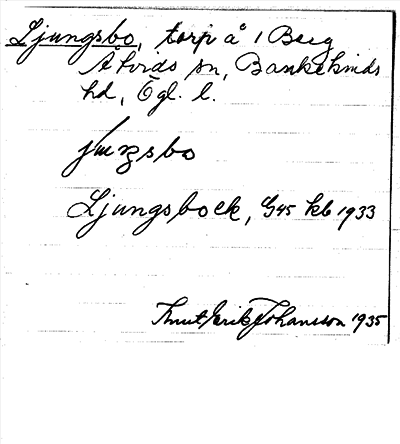 Ljungsbo, torp å 1 Berg
Åtvids sn, Bankekinds
hd, Ögl. l.
Ljungsboek, G45 kb 1933
Knut Erik Johansson 1935